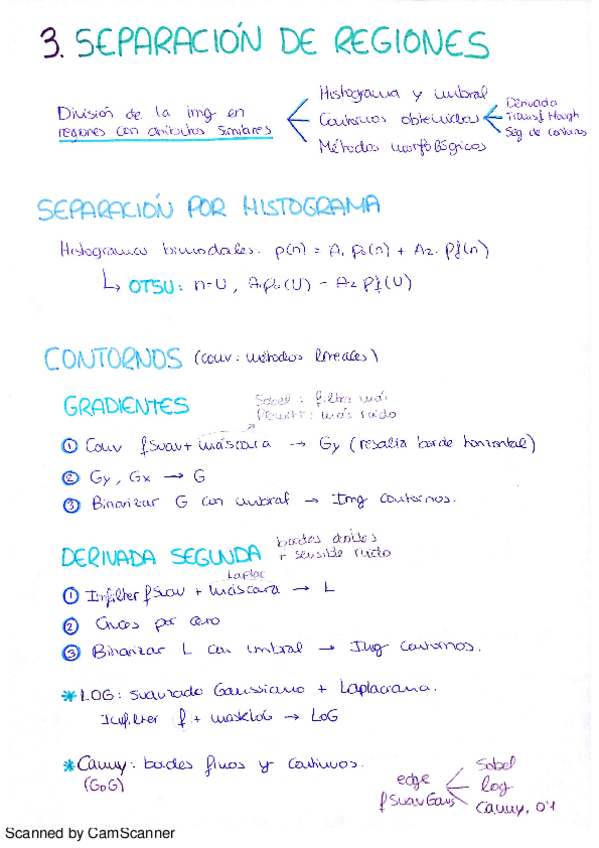 3. SEPARACIÓN DE REGIONES
División de la img en
regiones con atributos similares
Histograma y umbral
Contornos obtenidos
Derivada
Transf Hough
Seg de contornos
Métodos morfológicos
SEPARACIÓN POR HISTOGRAMA
Histogramas bimodales. p(n) = A₁ p₀(n) + A₂ . pf(n)
↳ OTSU: n=U, A₁p₀(U) = A₂ pf(U)
CONTORNOS (conv: métodos lineales)
GRADIENTES
Sobel : filtra más
Prewitt: más ruido
① Conv fsuav + máscara → Gy (resalta borde horizontal)
② Gy, Gx → G
③ Binarizar G con umbral → Img contornos.
DERIVADA SEGUNDA
bordes dobles
+ sensible ruido
Laplac
① Imfilter fsuav + máscara → L
② Cruces por cero
③ Binarizar L con umbral → Img contornos.
* LOG: suavizado Gaussiano + Laplaciana.
Imfilter f + maskLoG → LoG
* Canny: bordes finos y continuos.
(GoG)
edge
fsuavGaus
Sobel
log
canny, 0'1
Scanned by CamScanner